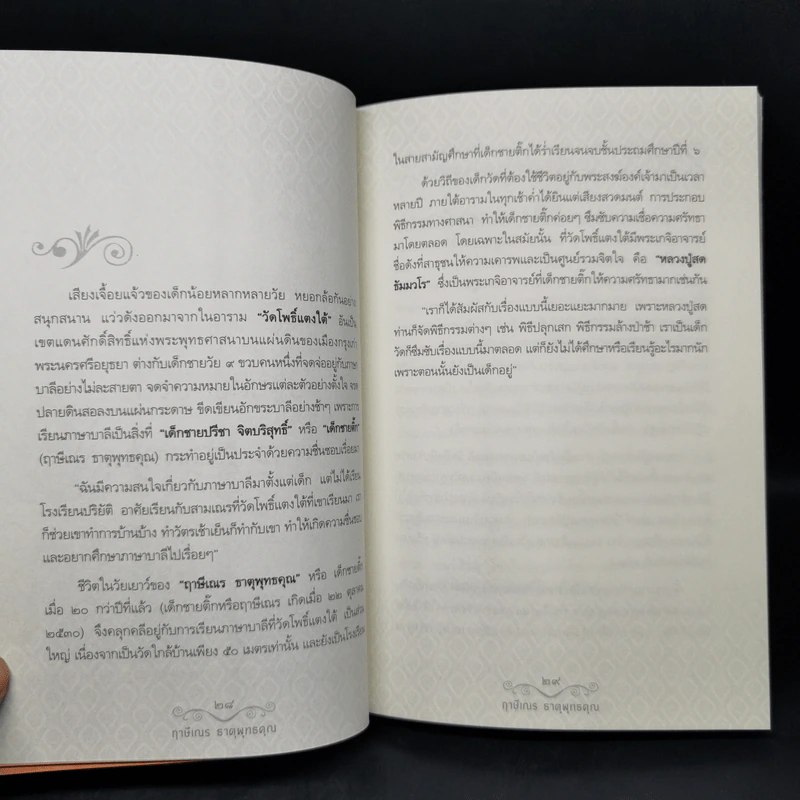 เสียงเจื้อยแจ้วของเด็กน้อยหลากหลายวัย หยอกล้อกันอย่าง
สนุกสนาน แว่วดังออกมาจากในอาราม "วัดโพธิ์แตงใต้" อันเป็น
เขตแดนศักดิ์สิทธิ์แห่งพระพุทธศาสนาบนแผ่นดินของเมืองกรุงเก่า
พระนครศรีอยุธยา ต่างกับเด็กชายวัย ๙ ขวบคนหนึ่งที่จดจ่ออยู่กับภาษา
บาลีอย่างไม่ละสายตา จดจำความหมายในอักษรแต่ละตัวอย่างตั้งใจ จรด
ปลายดินสอลงบนแผ่นกระดาษ ขีดเขียนอักขระบาลีอย่างช้าๆ เพราะการ
เรียนภาษาบาลีเป็นสิ่งที่ "เด็กชายปรีชา จิตบริสุทธิ์" หรือ "เด็กชายติ๊ก"
(ฤาษีเณร ธาตุพุทธคุณ) กระทำอยู่เป็นประจำด้วยความชื่นชอบเรื่อยมา
"ฉันมีความสนใจเกี่ยวกับภาษาบาลีมาตั้งแต่เด็ก แต่ไม่ได้เรียน
โรงเรียนปริยัติ อาศัยเรียนกับสามเณรที่วัดโพธิ์แตงใต้ที่เขาเรียนมา เรา
ก็ช่วยเขาทำการบ้านบ้าง ทำวัตรเช้าเย็นก็ทำกับเขา ทำให้เกิดความชื่นชอบ
และอยากศึกษาภาษาบาลีไปเรื่อยๆ"
ชีวิตในวัยเยาว์ของ "ฤาษีเณร ธาตุพุทธคุณ" หรือ เด็กชายติ๊ก
เมื่อ ๒๐ กว่าปีที่แล้ว (เด็กชายติ๊กหรือฤาษีเณร เกิดเมื่อ ๒๒ ตุลาคม
๒๕๓๐) จึงคลุกคลีอยู่กับการเรียนภาษาบาลีที่วัดโพธิ์แตงใต้ เป็นส่วน
ใหญ่ เนื่องจากเป็นวัดใกล้บ้านเพียง ๕๐ เมตรเท่านั้น และยังเป็นโรงเรียน
๒๘
ฤาษีเณร ธาตุพุทธคุณ
ในสายสามัญศึกษาที่เด็กชายติ๊กได้ร่ำเรียนจนจบชั้นประถมศึกษาปีที่ ๖
ด้วยวิถีของเด็กวัดที่ต้องใช้ชีวิตอยู่กับพระสงฆ์องค์เจ้ามาเป็นเวลา
หลายปี ภายใต้อารามในทุกเช้าค่ำได้ยินแต่เสียงสวดมนต์ การประกอบ
พิธีกรรมทางศาสนา ทำให้เด็กชายติ๊กค่อยๆ ซึมซับความเชื่อความศรัทธา
มาโดยตลอด โดยเฉพาะในสมัยนั้น ที่วัดโพธิ์แตงใต้มีพระเกจิอาจารย์
ชื่อดังที่สาธุชนให้ความเคารพและเป็นศูนย์รวมจิตใจ คือ "หลวงปู่สด
ธัมมวโร" ซึ่งเป็นพระเกจิอาจารย์ที่เด็กชายติ๊กให้ความศรัทธามากเช่นกัน
"เราก็ได้สัมผัสกับเรื่องแบบนี้เยอะแยะมากมาย เพราะหลวงปู่สด
ท่านก็จัดพิธีกรรมต่างๆ เช่น พิธีปลุกเสก พิธีกรรมล้างป่าช้า เราเป็นเด็ก
วัดก็ซึมซับเรื่องแบบนี้มาตลอด แต่ก็ยังไม่ได้ศึกษาหรือเรียนรู้อะไรมากนัก
เพราะตอนนั้นยังเป็นเด็กอยู่"
๒๙
ฤาษีเณร ธาตุพุทธคุณ